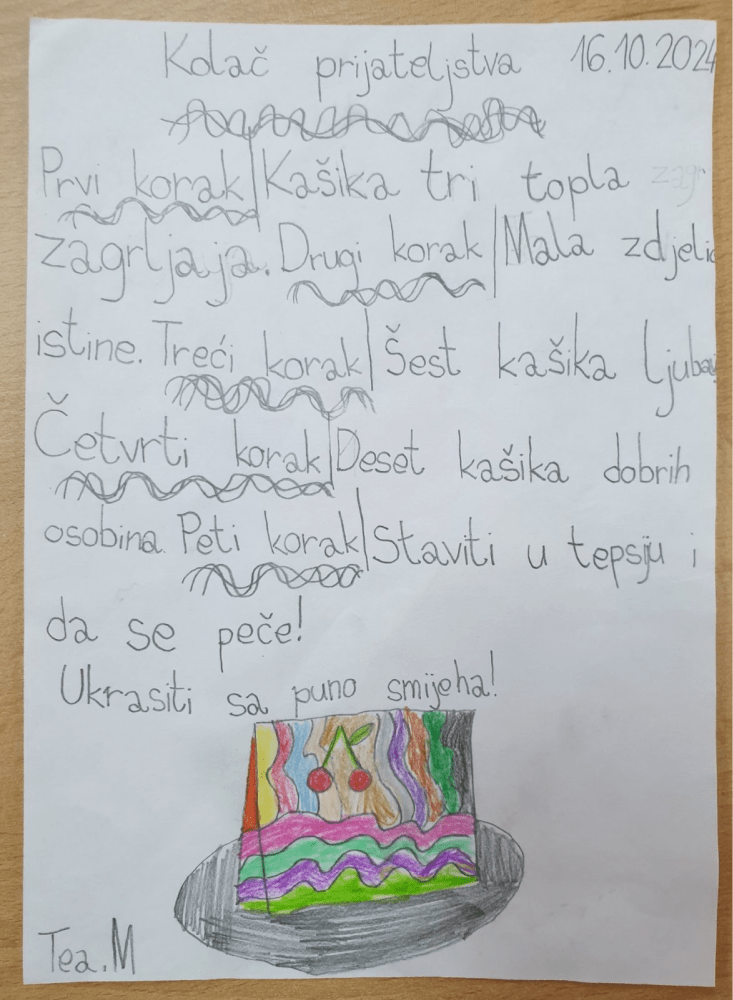 Kolač prijateljstva 16.10.2024
Prvi korak|Kašika tri topla zagr
zagrljaja. Drugi korak|Mala zdjelic
istine. Treći korak|Šest kašika ljubav
Četvrti korak|Deset kašika dobrih
osobina. Peti korak|Staviti u tepsiju i
da se peče!
Ukrasiti sa puno smijeha!
Tea.M